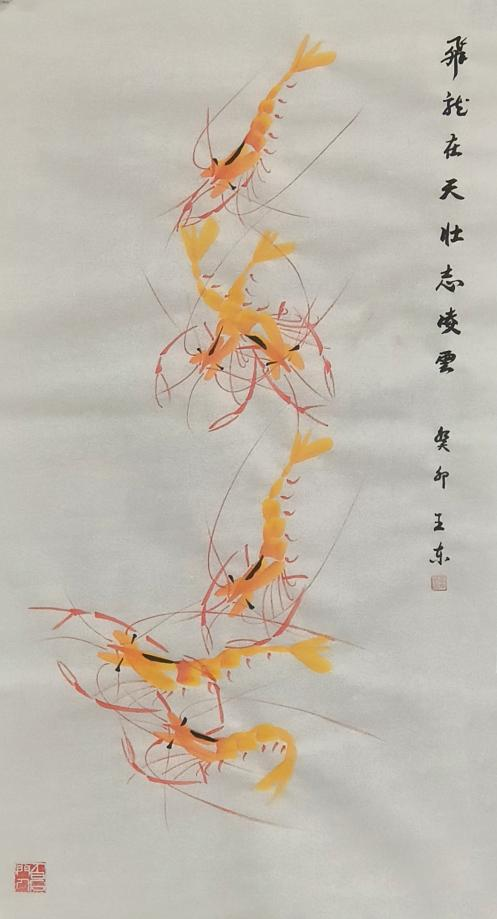 飛龍在天壮志凌雲
癸卯王东